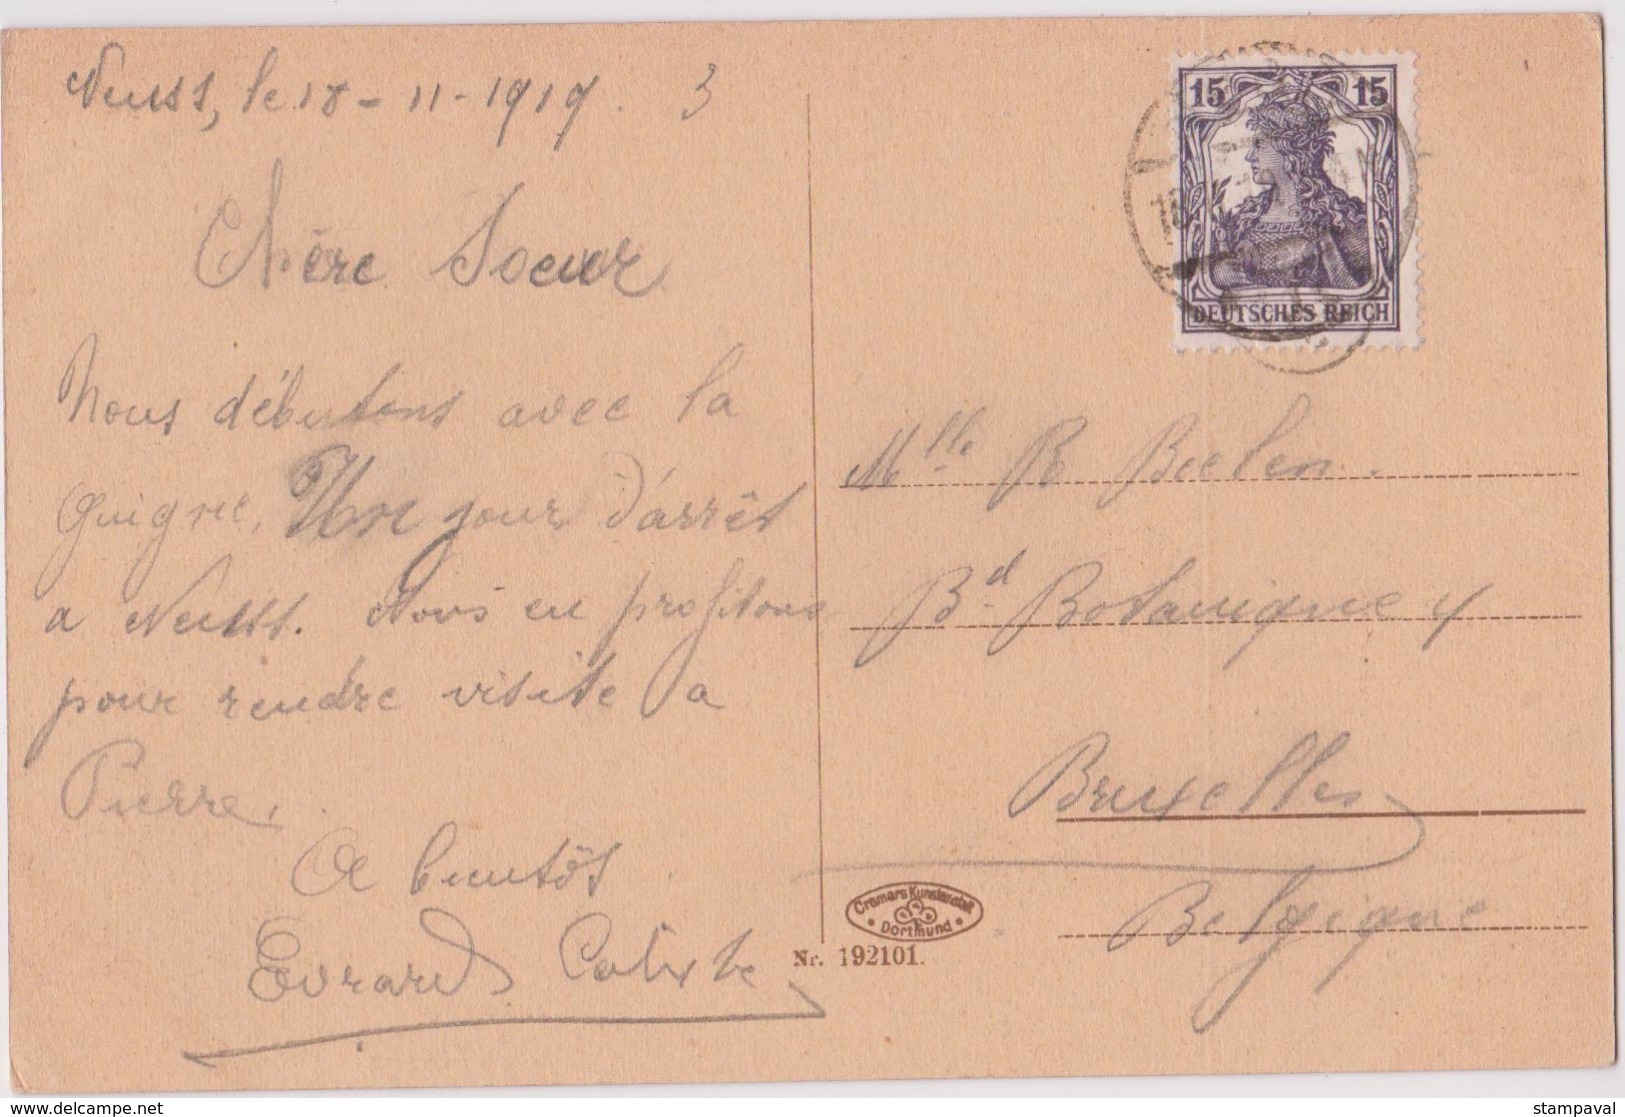 Neuss, le 18-11-1919. 3
Chère Soeur
Nous débutons avec la
guigne. Un jour d'arrêt
a Neuss. Nous en profitons
pour rendre visite a
Pierre.
A bientôt
Evrard Calixte
15 15
DEUTSCHES REICH
Mlle R Beelen.
Bd Botanique 4
Bruxelles
Belgique
Cramers Kunstanstalt
Dortmund
Nr. 192101.
https://www.delcampe.net
stampaval